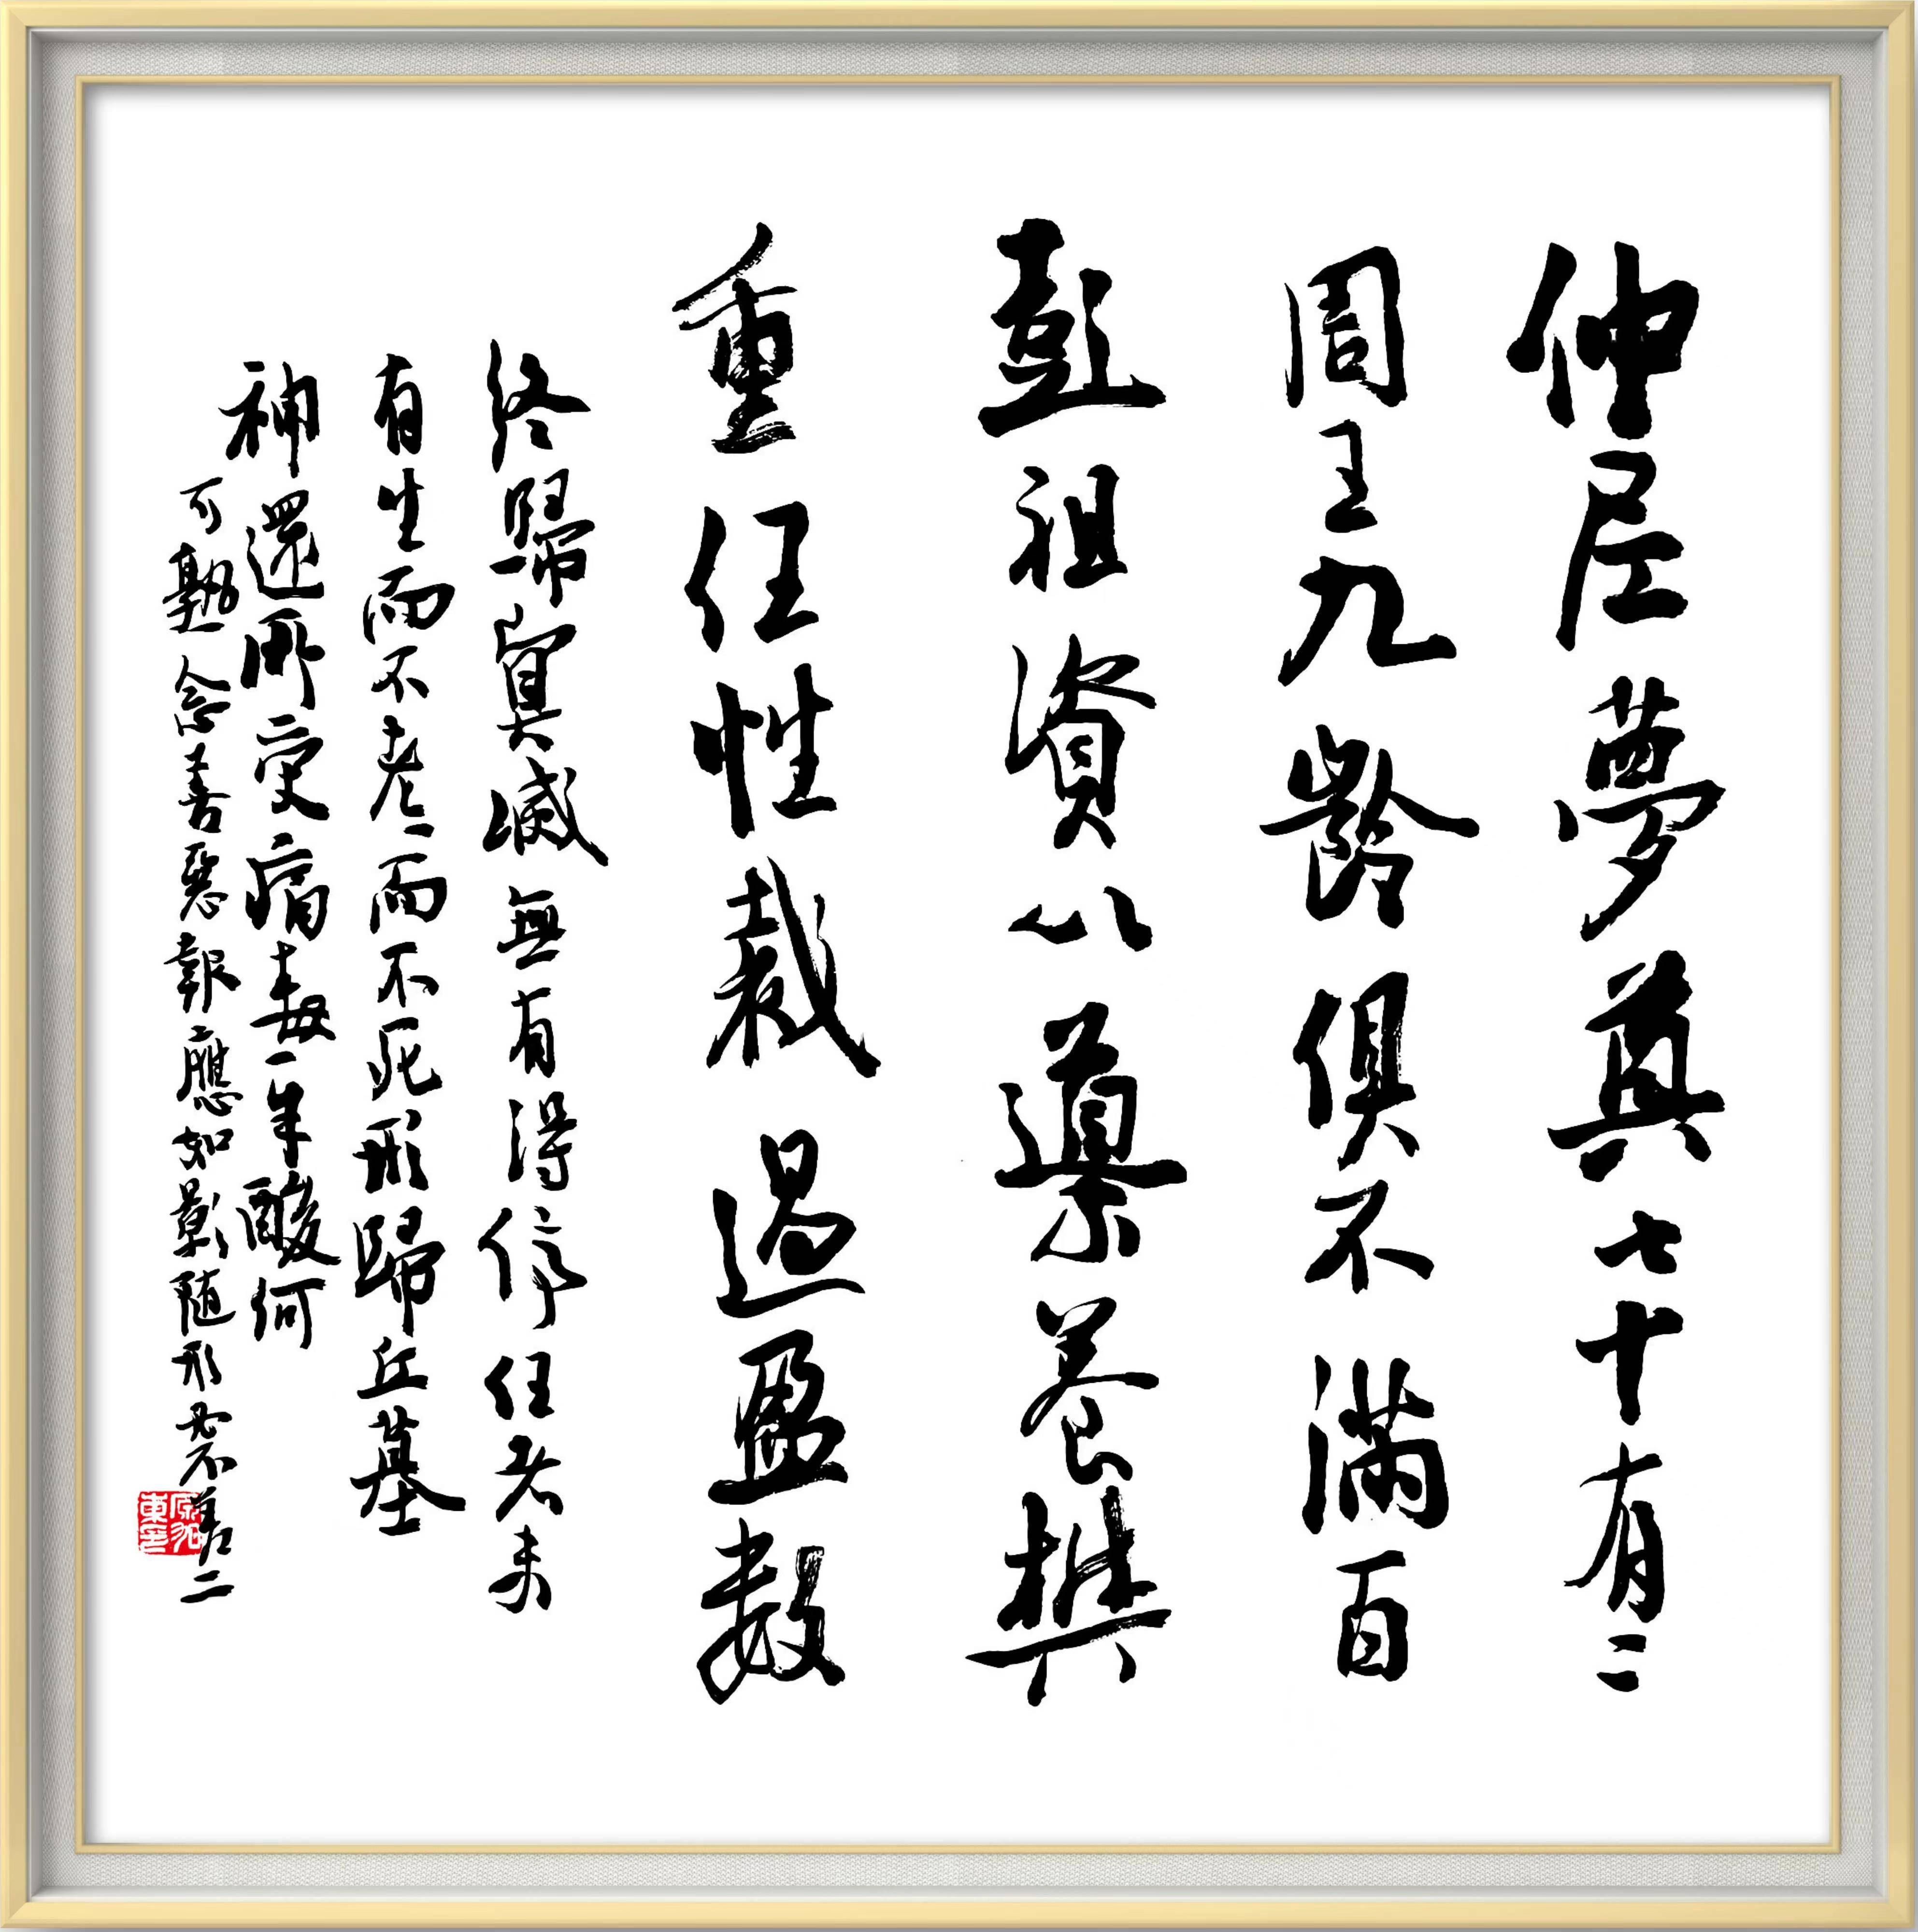 仲尼夢奠七十有二
周王九齡俱不滿百
彭祖資以導養樊
重任性裁過盈數
終歸冥滅無有得停住者未
有生而不老老而不死形歸丘墓
神還所受痛毒辛酸何
可熟念善惡報應如影隨形必不差二